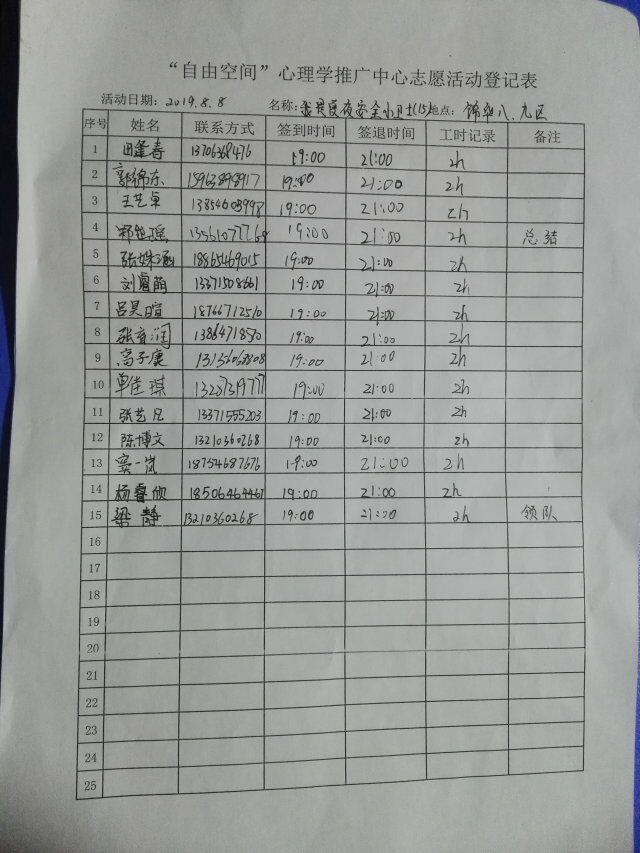 “自由空间”心理学推广中心志愿活动登记表
活动日期：2019.8.8 名称：我是夏夜安全小卫士(15)地点：锦华八、九区
序号 姓名 联系方式 签到时间 签退时间 工时记录 备注
1 田蓬春 19:00 21:00 2h
2 郭锦东 15963898917 19:00 21:00 2h
3 王艺卓 13854603998 19:00 21:00 2h
4 19:00 21:00 2h 总结
5 张姝涵 18865469015 19:00 21:00 2h
6 刘睿萌 13371508661 19:00 21:00 2h
7 吕昊暄 18766712510 19:00 21:00 2h
8 19:00 21:00 2h
9 高子康 19:00 21:00 2h
10 单佳琪 19:00 21:00 2h
11 张艺凡 13371555203 19:00 21:00 2h
12 陈博文 13210360268 19:00 21:00 2h
13 窦一岚 18754687676 19:00 21:00 2h
14 杨睿欣 18506464467 19:00 21:00 2h
15 梁静 13210360268 19:00 21:00 2h 领队
16
17
18
19
20
21
22
23
24
25